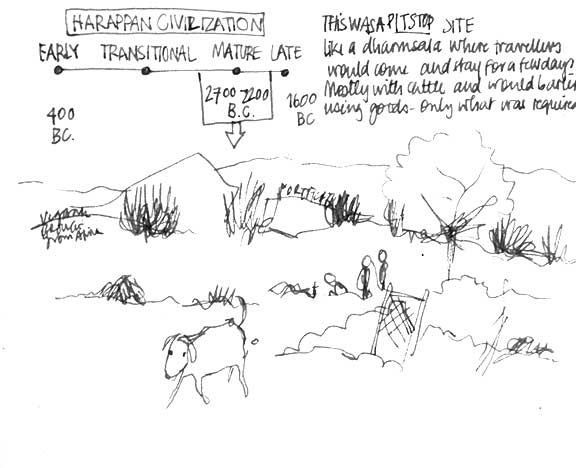 HARAPPAN CIVILIZATION
EARLY TRANSITIONAL MATURE LATE
400 BC.
2700 2200
B.C.
1600
BC
THIS WAS A PITSTOP SITE
like a dharmsala where travellers
would come and stay for a few days.
Mostly with cattle and would barter
using goods - only what was required
from